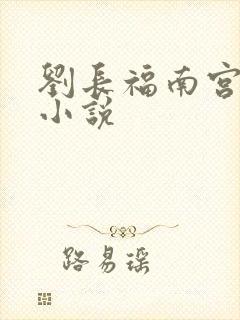 劉長福南宮
小說
路易瑤